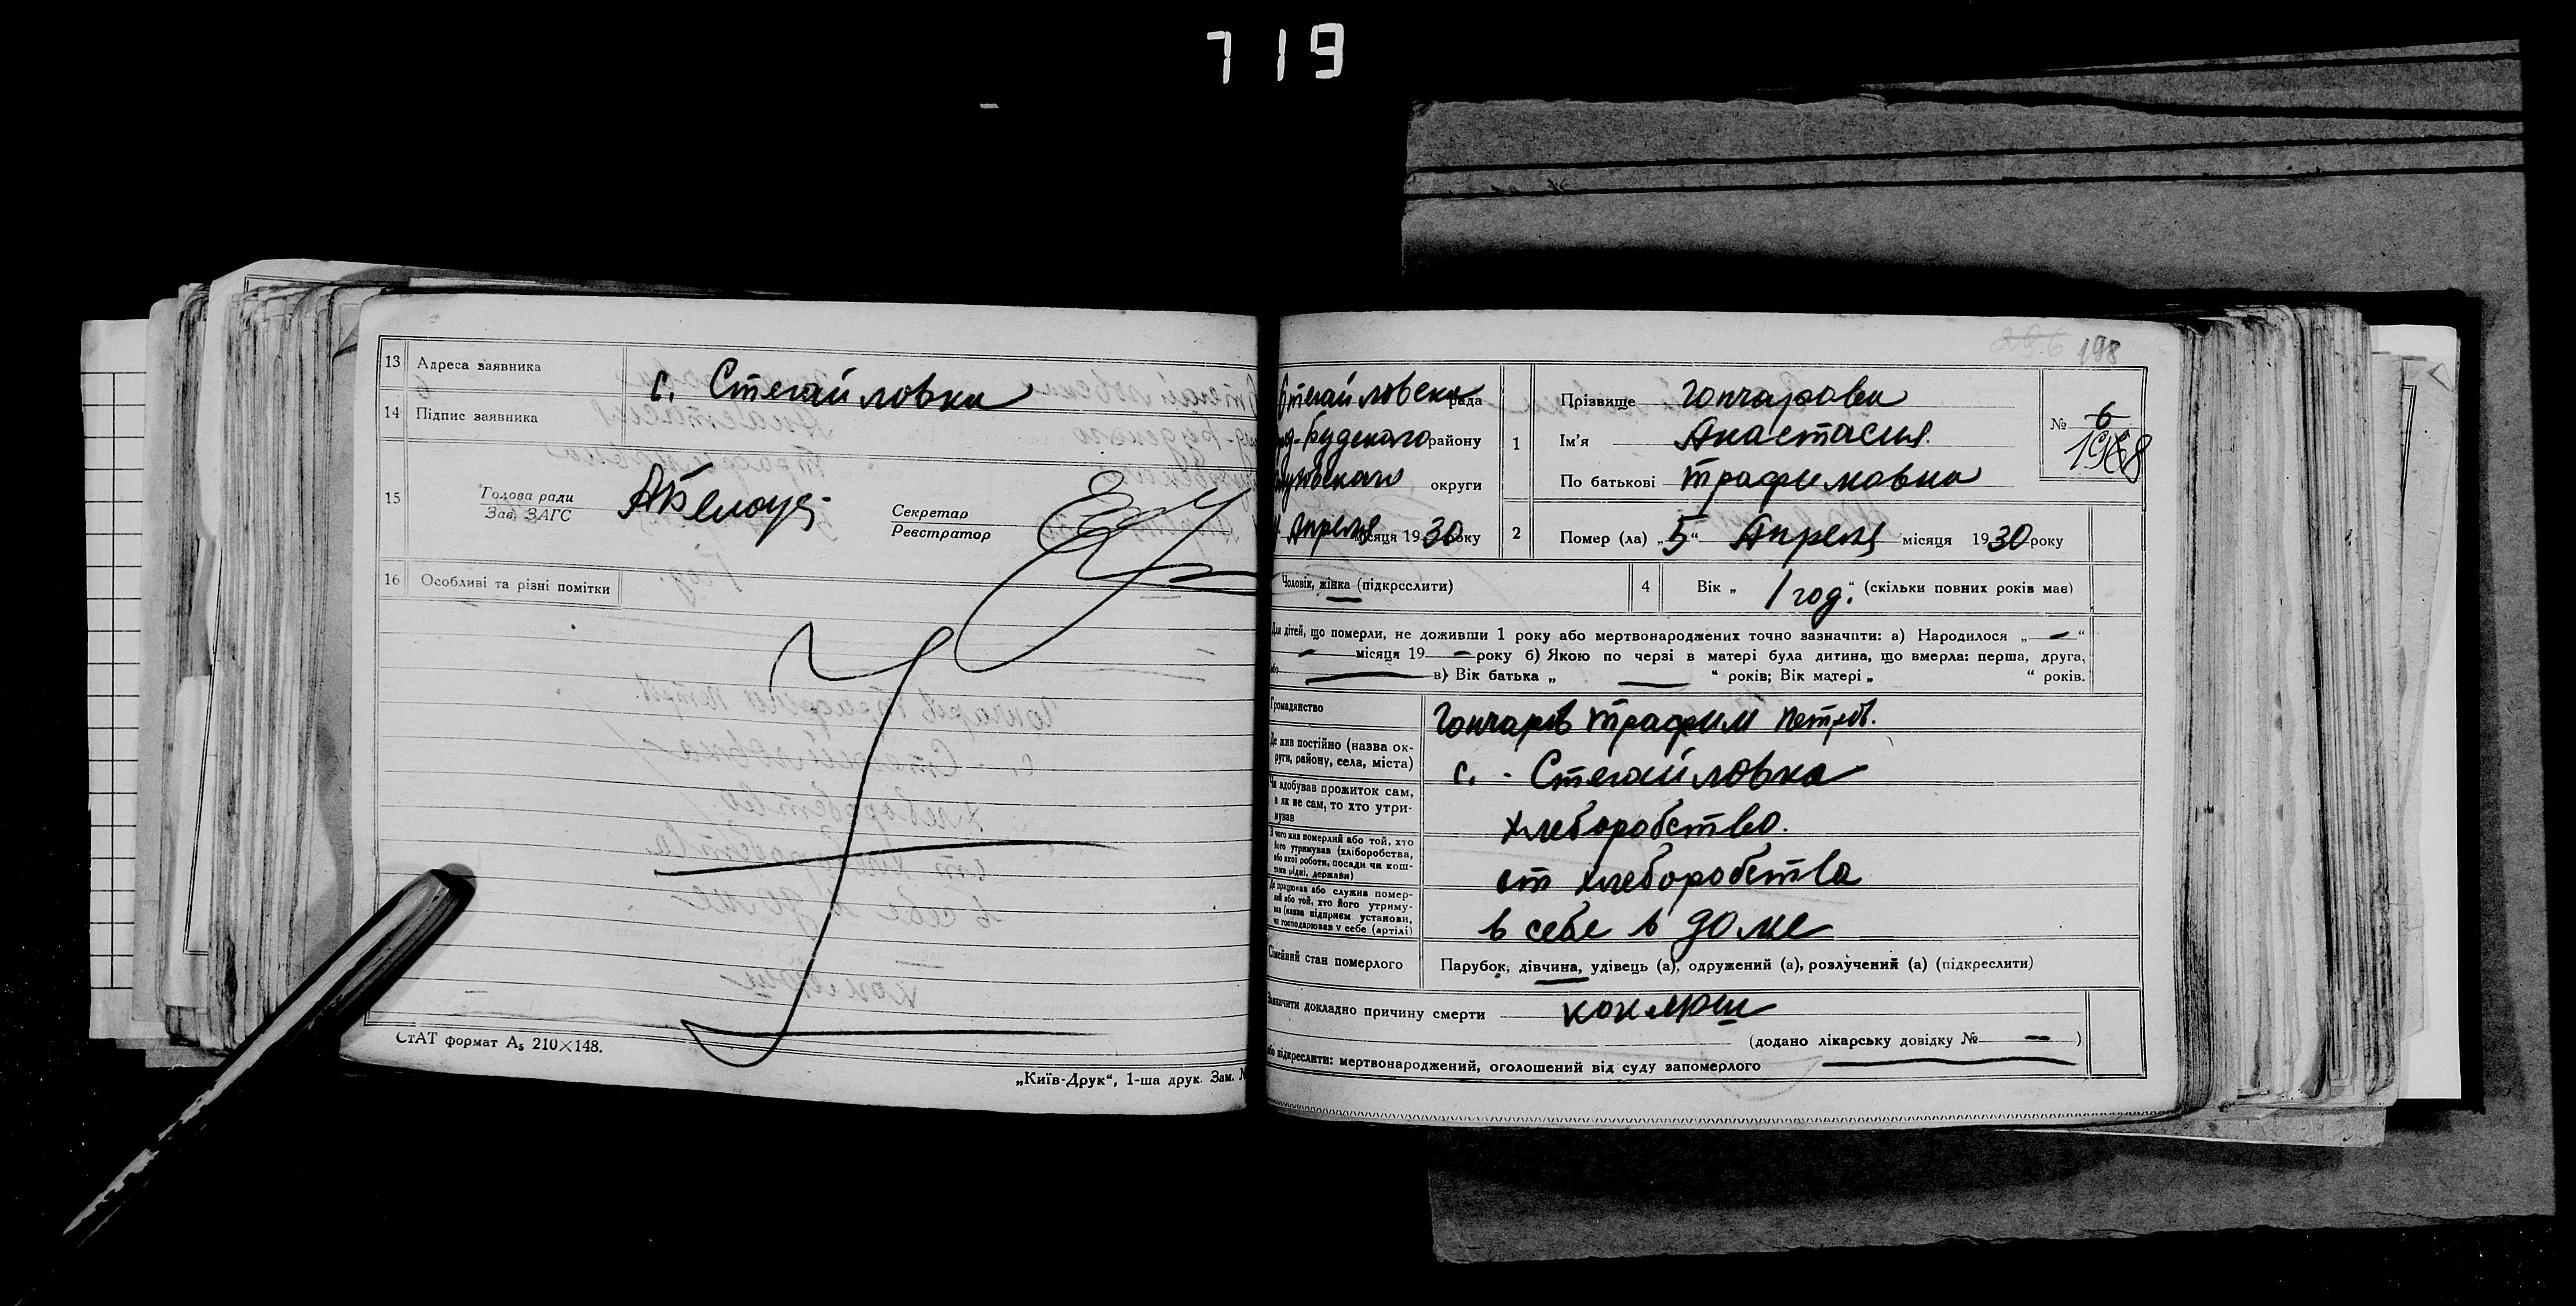 719
13 Адреса заявника с. Стегайловка
14 Підпис заявника
15 Голова ради
Зав. ЗАГС
Секретар
Реєстратор
16 Особливі та різні помітки
СтАТ формат А₅ 210×148.
„Київ-Друк“, 1-ша друк. Зам. №
198
Стегайловска рада
району
округи
Апреля місяця 1930 року
1 Прізвище Гончарова
Ім’я Анастасия
По батькові Трафимовна
№ 6
198
2 Помер (ла) „5“ Апреля місяця 1930 року
Чоловік, жінка (підкреслити)
4 Вік „ 1 год. “ (скільки повних років має)
Для дітей, що померли, не доживши 1 року або мертвонароджених точно зазначити: а) Народилося „—“
— місяця 19 — року б) Якою по черзі в матері була дитина, що вмерла: перша, друга,
або — в) Вік батька „ — “ років; Вік матері „ “ років.
Громадянство Гончаров Трафим Петров.
Де жив постійно (назва ок-
руги, району, села, міста) с. - Стегайловка
Чи здобував прожиток сам,
а як не сам, то хто утри-
мував хлеборобство.
З чого жив померлий або той, хто
його утримував (хліборобства,
або якої роботи, посади чи кош-
тами рідні, держави) от хлеборобства
Де працював або служив помер-
лий або той, хто його утриму-
вав (назва підприєм. установи,
чи господарював у себе (артілі) в себе в доме
Сімейний стан померлого Парубок, дівчина, удівець (а), одружений (а), розлучений (а) (підкреслити)
Зазначити докладно причину смерти коклюш
(додано лікарську довідку № — )
або підкреслити: мертвонароджений, оголошений від суду запомерлого